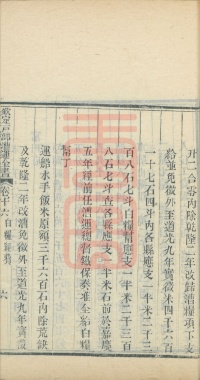 升二合零內除乾隆二年改漕糧項下支
給並免徵外至道光九年實徵米四千六百
一十七石四斗內各縣應支一半米二千三
百八石七斗白糧幫應支一半米二千三百
八石七斗查各縣應支一半米石前於嘉慶
五年經前任漕運總督鐵保奏准全給白糧
幫丁
運船水手飯米原額三千六百石內除荒缺
及乾隆二年改漕免徵外至道光九年實徵
欽定戶部漕運全書 卷十六 白糧 六